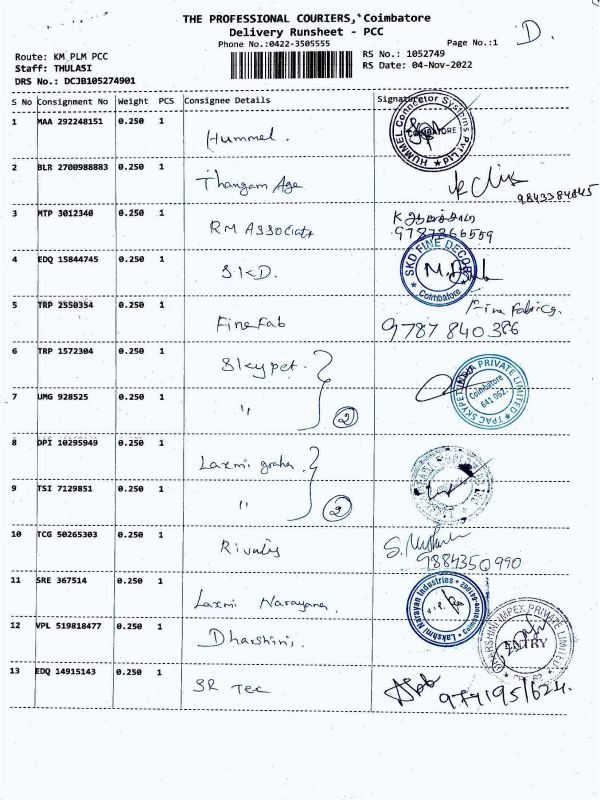 THE PROFESSIONAL COURIERS, Coimbatore
Delivery Runsheet - PCC
Phone No.:0422-3505555
Page No.:1
D.
Route: KM PLM PCC
Staff: THULASI
DRS No.: DCJB105274901
RS No.: 1052749
RS Date: 04-Nov-2022
S No Consignment No Weight PCS Consignee Details Signature
1 MAA 292248151 0.250 1 Hummel. HUMMEL Connector Systems Pvt Ltd COIMBATORE
2 BLR 2700988883 0.250 1 Thangam Age
9843384845
3 MTP 3012340 0.250 1 RM Associats
9787866559
4 EDQ 15844745 0.250 1 SKD. SKD FINE DECOR Coimbatore
5 TRP 2550354 0.250 1 FineFab Fine Fabrics.
9787 840 386
6 TRP 1572304 0.250 1 Skypet. TPAC SKYPET PRIVATE LIMITED Coimbatore 641 062.
7 UMG 928525 0.250 1 " 2
8 DPI 10295949 0.250 1 Laxmi graha.
9 TSI 7129851 0.250 1 " 2
10 TCG 50265303 0.250 1 Rivulis
9884350990
11 SRE 367514 0.250 1 Laxmi Narayana. Lakshmi Narayan Industries
12 VPL 519818477 0.250 1 Dharshini, DHARSHINI IMPEX PRIVATE LIMITED ENTRY
13 EDQ 14915143 0.250 1 SR Tec
9741951624.